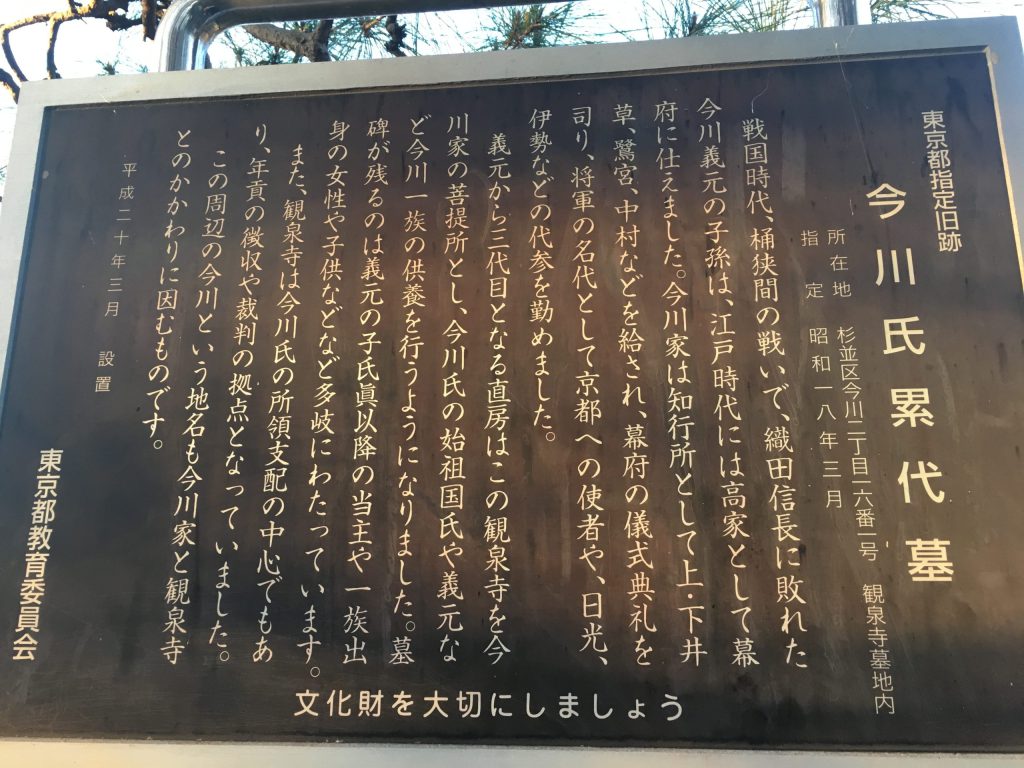 東京都指定旧跡
今川氏累代墓
所在地 杉並区今川二丁目一六番一号 観泉寺墓地内
指定 昭和一八年三月
戦国時代、桶狭間の戦いで、織田信長に敗れた
今川義元の子孫は、江戸時代には高家として幕
府に仕えました。今川家は知行所として上・下井
草、鷺宮、中村などを給され、幕府の儀式典礼を
司り、将軍の名代として京都への使者や、日光、
伊勢などの代参を勤めました。
義元から三代目となる直房はこの観泉寺を今
川家の菩提所とし、今川氏の始祖国氏や義元な
ど今川一族の供養を行うようになりました。墓
碑が残るのは義元の子氏眞以降の当主や一族出
身の女性や子供などなど多岐にわたっています。
また、観泉寺は今川氏の所領支配の中心でもあ
り、年貢の徴収や裁判の拠点となっていました。
この周辺の今川という地名も今川家と観泉寺
とのかかわりに因むものです。
平成二十年三月 設置
東京都教育委員会
文化財を大切にしましょう